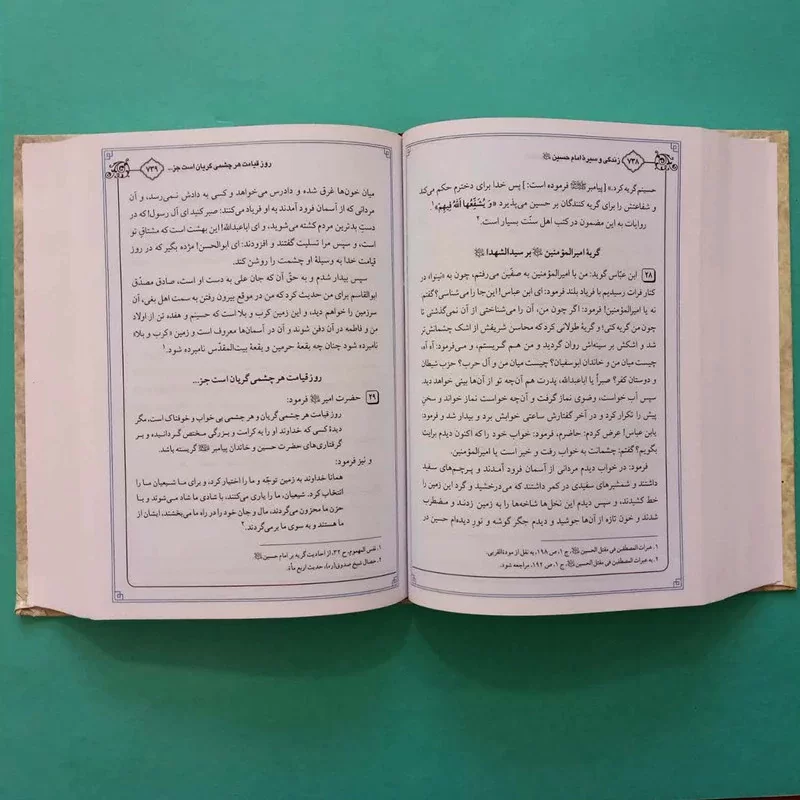 ۷۳۸ زندگی و سیرهٔ امام حسین ﷺ
حسینم گریه کرد.» [پیامبر ﷺ فرموده است:] پس خدا برای دخترم حکم می‌کند
و شفاعتش را برای گریه کنندگان بر حسین می‌پذیرد «وَ یُشَفِّعُها اللهُ فیهِم».۱
روایات به این مضمون در کتب اهل سنّت بسیار است.۲
گریهٔ امیرالمؤمنین ﷺ بر سیدالشهدا ﷺ
۲۸ ابن عبّاس گوید: من با امیرالمؤمنین به صفّین می‌رفتم، چون به «نینوا» در
کنار فرات رسیدیم با فریاد بلند فرمود: ای ابن عباس! این‌جا را می‌شناسی؟ گفتم:
نه یا امیرالمؤمنین! فرمود: اگر چون من، آن را می‌شناختی از آن نمی‌گذشتی تا
چون من گریه کنی؛ و گریهٔ طولانی کرد که محاسن شریفش از اشک چشمانش تر
شد و اشکش بر سینه‌اش روان گردید و من هم گریستم، و می‌فرمود: آه آه،
چیست میان من و خاندان ابوسفیان؟ چیست میان من و آل حرب؟ حزب شیطان
و دوستان کفر؟ صبراً یا اباعبدالله، پدرت هم آن‌چه تو از آن‌ها بینی خواهد دید.
سپس آب خواست، وضوی نماز گرفت و آن‌چه خواست نماز خواند و سخن
پیش را تکرار کرد و در آخر گفتارش ساعتی خوابش برد و بیدار شد و فرمود:
یابن عباس! عرض کردم: حاضرم، فرمود: خواب خود را که اکنون دیدم برایت
بگویم؟ گفتم: چشمانت به خواب رفت و خیر است یا امیرالمؤمنین.
فرمود: در خواب دیدم مردانی از آسمان فرود آمدند و پرچم‌های سفید
داشتند و شمشیرهای سفیدی در کمر داشتند که می‌درخشید و گرد این زمین را
خط کشیدند، و سپس دیدم این نخل‌ها شاخه‌ها را به زمین زدند و مضطرب
شدند و خون تازه از آن‌ها جوشید و دیدم جگر گوشه و نور دیده‌ام حسین در
۱. عبرات المصطفین فی مقتل الحسین ﷺ، ج ۱، ص ۱۹۸، به نقل از مودةالقربی.
۲. به عبرات المصطفین فی مقتل الحسین ﷺ، ج ۱، ص ۱۹۲، مراجعه شود.
روز قیامت هر چشمی گریان است جز... ۷۳۹
میان خون‌ها غرق شده و دادرس می‌خواهد و کسی به دادش نمی‌رسد، و آن
مردانی که از آسمان فرود آمدند به او فریاد می‌کنند: صبر کنید ای آل رسول! که در
دستِ بدترین مردم کشته می‌شوید، و ای اباعبدالله! این بهشت است که مشتاقِ تو
است، و سپس مرا تسلیت گفتند و افزودند: ای ابوالحسن! مژده بگیر که در روز
قیامت خدا به وسیلهٔ او چشمت را روشن کند.
سپس بیدار شدم و به حقّ آن که جان علی به دست او است، صادق مصدّق
ابوالقاسم برای من حدیث کرد که من در موقع بیرون رفتن به سمت اهل بغی، آن
سرزمین را خواهم دید، و این زمین کرب و بلا است که حسینم و هفده تن از اولاد
من و فاطمه در آن دفن شوند و آن در آسمان‌ها معروف است و زمین «کرب و بلا»
نامبرده شود چنان چه بقعهٔ حرمین و بقعهٔ بیت‌المقدّس نامبرده شود.۱
روز قیامت هر چشمی گریان است جز...
۲۹ حضرت امیر ﷺ فرمود:
روز قیامت هر چشمی گریان و هر چشمی بی خواب و خوفناک است، مگر
دیدهٔ کسی که خداوند او را به کرامت و بزرگی مختص گردانیده و بر
گرفتاری‌های حضرت حسین و خاندان پیامبر ﷺ گریسته باشد.
و نیز فرمود:
همانا خداوند به زمین توجّه و ما را اختیار کرد، و برای ما شیعیان ما را
انتخاب کرد. شیعیان، ما را یاری می‌کنند، با شادی ما شاد می‌شوند و با
حزن ما محزون می‌گردند، مال و جان خود را در راه ما می‌بخشند، ایشان از
ما هستند و به سوی ما بر می‌گردند.۲
۱. نفس المهموم، ح ۳۲، از احادیث گریه بر امام حسین ﷺ
۲. خصال شیخ صدوق(ره)، حدیث اربع مأة.